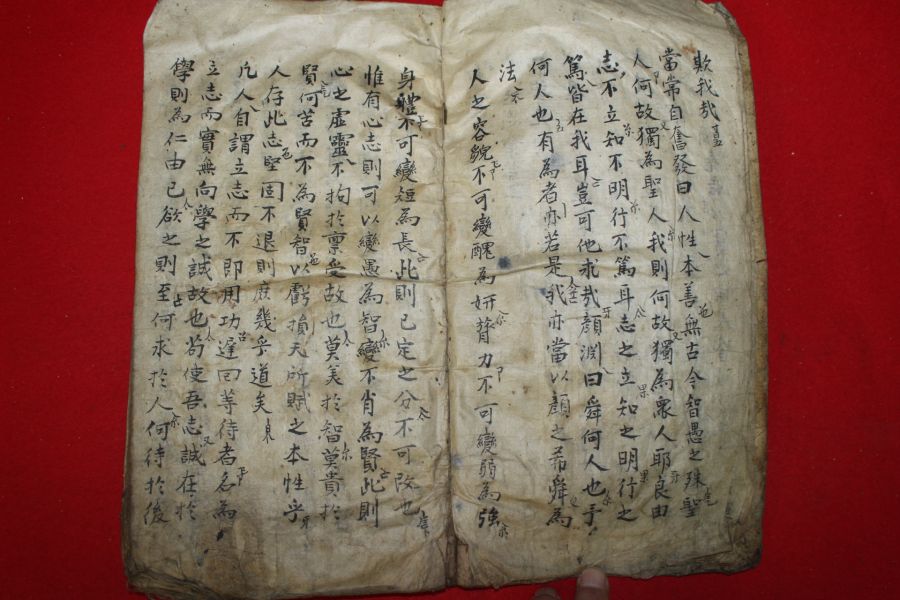 欺我哉
當常自奮發曰人性本善無古今智愚之殊聖
人何故獨為聖人我則何故獨為衆人耶良由
志不立知不明行不篤耳志之立知之明行之
篤皆在我耳豈可他求哉顔淵曰舜何人也予
何人也有為者亦若是我亦當以顔之希舜為
法
人之容貌不可變醜為姸膂力不可變弱為強
身體不可變短為長此則已定之分不可改也
惟有心志則可以變愚為智變不肖為賢此則
心之虛靈不拘於稟受故也莫美於智莫貴於
賢何苦而不為賢智以虧損天所賦之本性乎
人存此志堅固不退則庶幾乎道矣
凡人自謂立志而不即用功遲回等待者名為
立志而實無向學之誠故也苟使吾志誠在於
學則為仁由己欲之則至何求於人何待於後